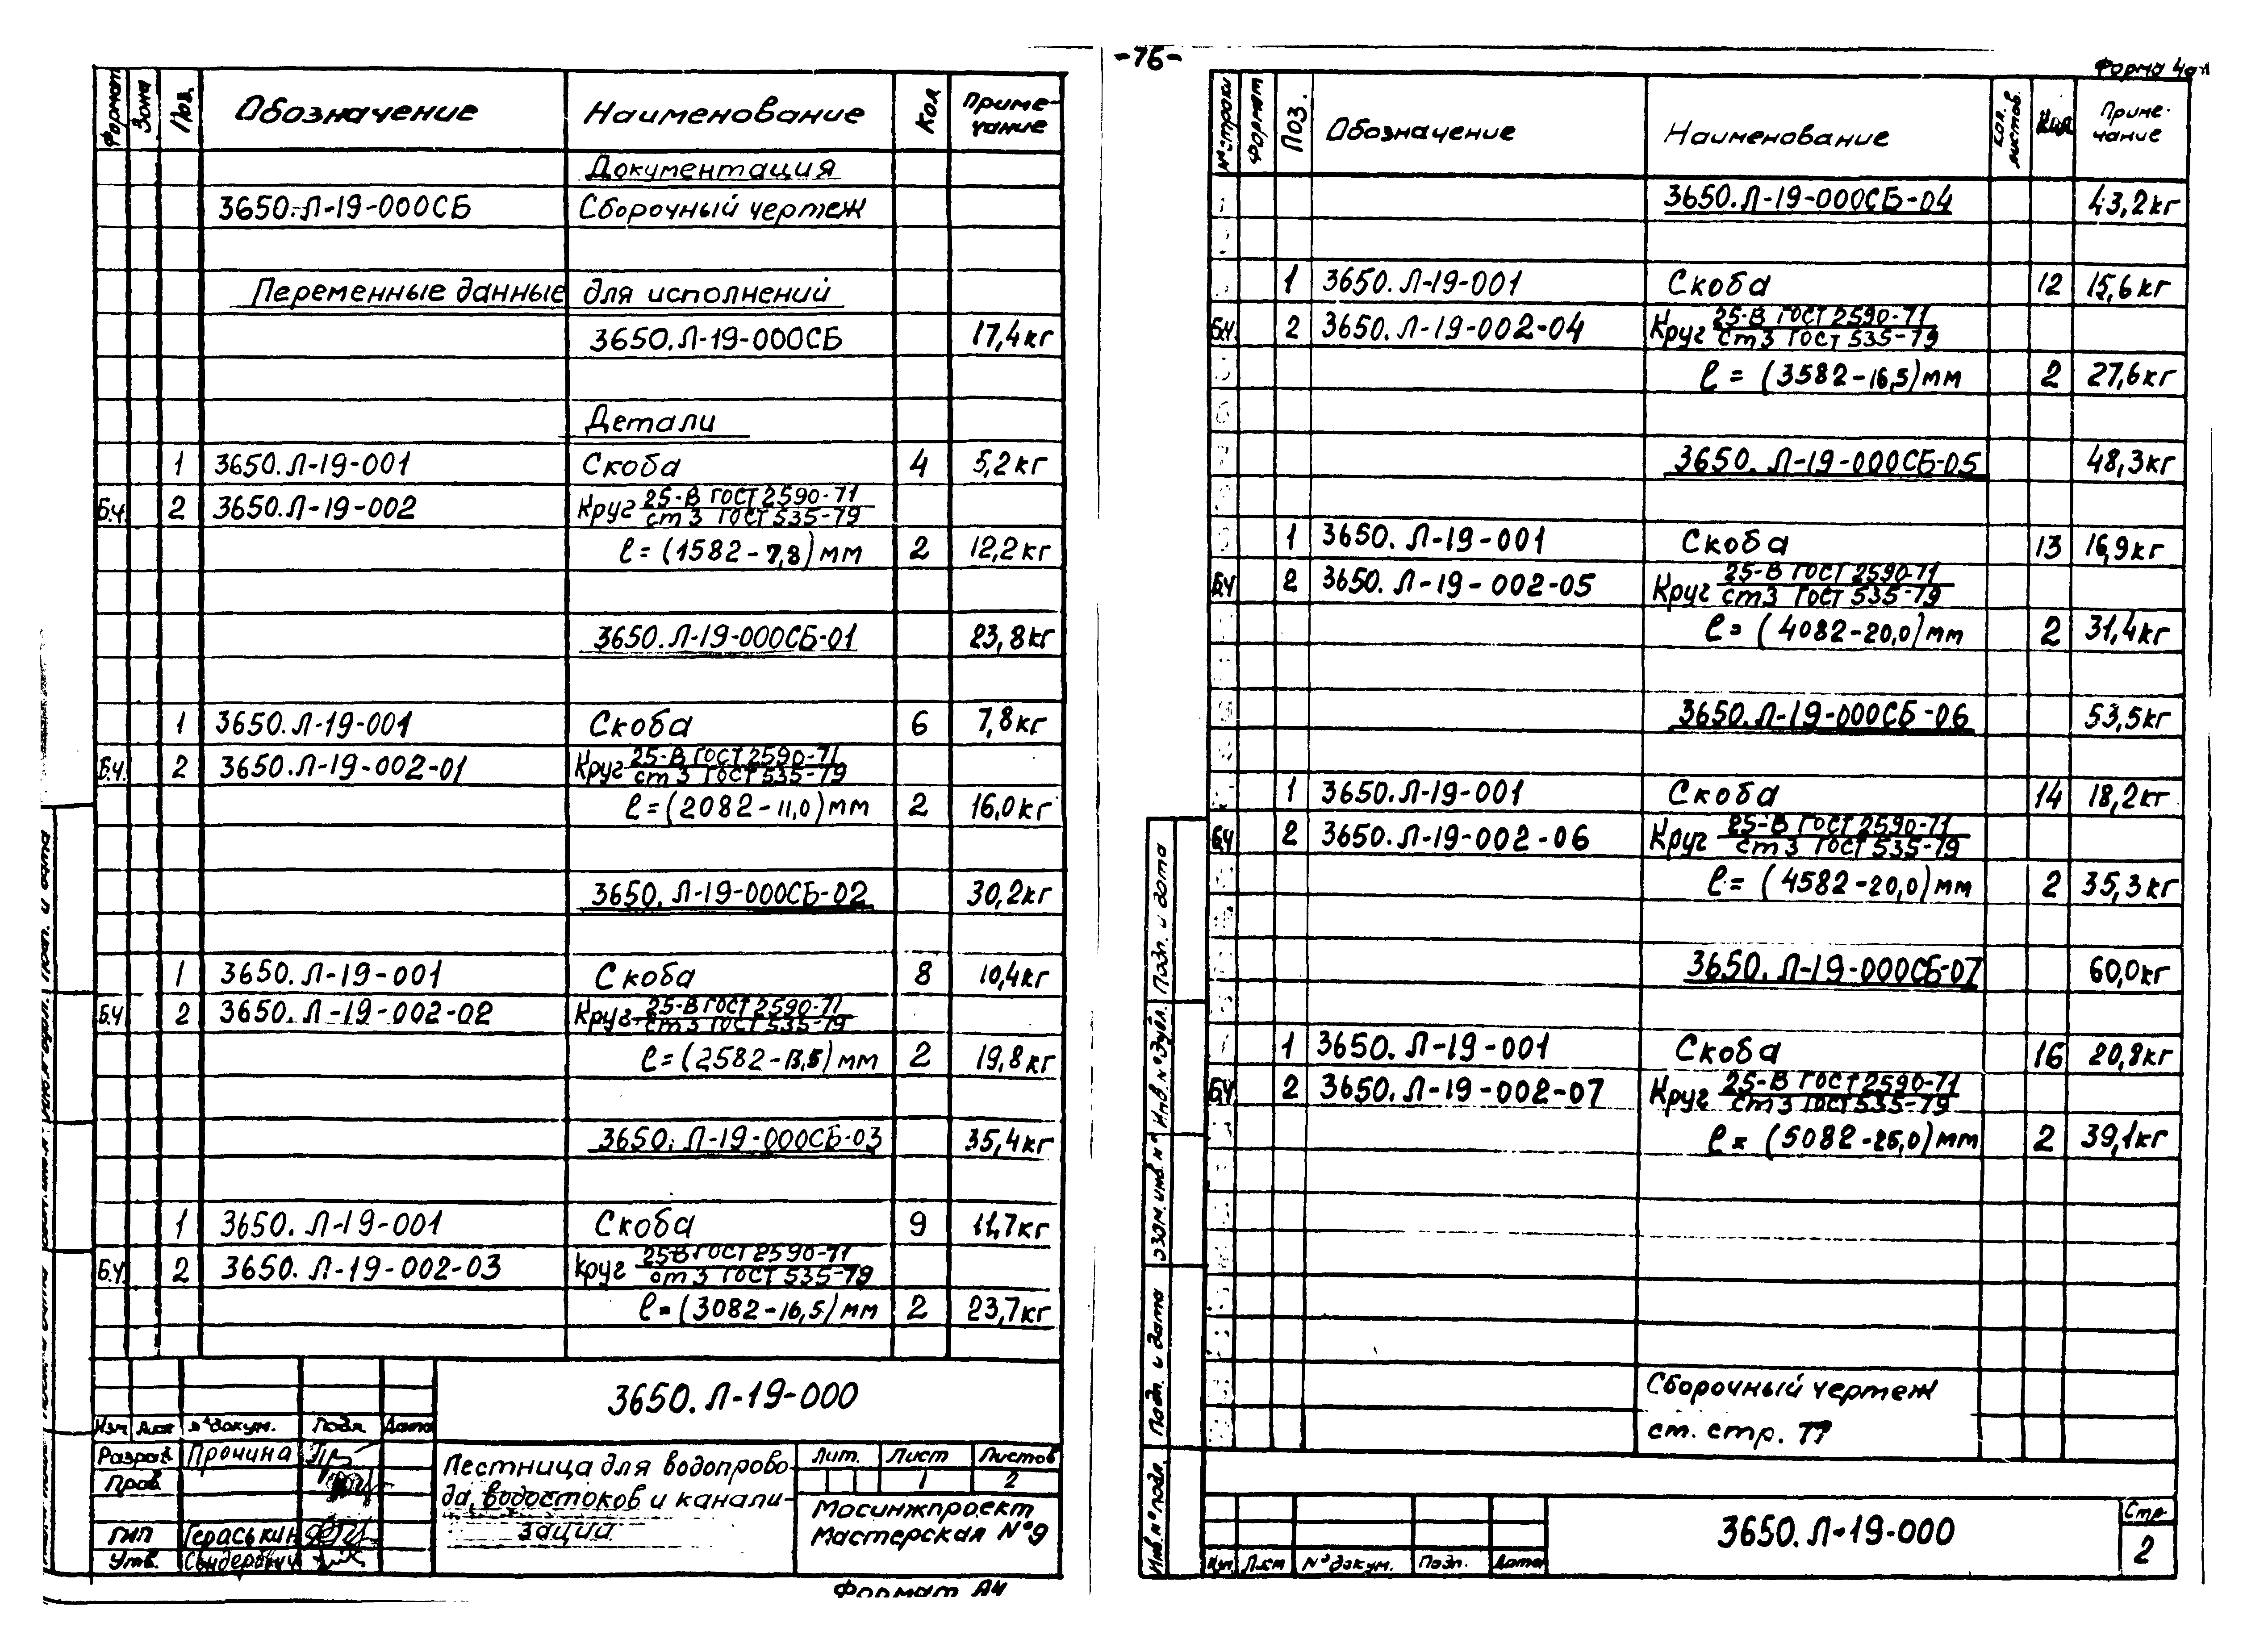 -76-
Формат Зона Поз. Обозначение Наименование Кол Приме-
чание
Документация
3650.Л-19-000СБ Сборочный чертеж
Переменные данные для исполнений
3650.Л-19-000СБ 17,4кг
Детали
1 3650.Л-19-001 Скоба 4 5,2кг
Б.ч. 2 3650.Л-19-002 Круг 25-В ГОСТ 2590-71
ст 3 ГОСТ 535-79
ℓ = (1582-7,8) мм 2 12,2кг
3650.Л-19-000СБ-01 23,8кг
1 3650.Л-19-001 Скоба 6 7,8кг
Б.ч. 2 3650.Л-19-002-01 Круг 25-В ГОСТ 2590-71
ст 3 ГОСТ 535-79
ℓ = (2082-11,0) мм 2 16,0кг
3650.Л-19-000СБ-02 30,2кг
1 3650.Л-19-001 Скоба 8 10,4кг
Б.ч 2 3650.Л-19-002-02 Круг 25-В ГОСТ 2590-71
ст 3 ГОСТ 535-79
ℓ = (2582-13,5) мм 2 19,8кг
3650.Л-19-000СБ-03 35,4кг
1 3650.Л-19-001 Скоба 9 11,7кг
Б.ч. 2 3650.Л-19-002-03 Круг 25-В ГОСТ 2590-71
ст 3 ГОСТ 535-79
ℓ = (3082-16,5) мм 2 23,7кг
3650.Л-19-000
Изм Лист №докум. Подп. Дата
Разраб. Прочина
Пров.
ГИП Гераськин
Утв.
Лестница для водопрово-
да, водостоков и канали-
зации
Лит. Лист Листов
1 2
Мосинжпроект
Мастерская №9
Формат А4
Форма 4а
№строки Формат Поз. Обозначение Наименование Кол. листов Кол Приме-
чание
3650.Л-19-000СБ-04 43,2кг
1 3650.Л-19-001 Скоба 12 15,6кг
Б.ч. 2 3650.Л-19-002-04 Круг 25-В ГОСТ 2590-71
ст 3 ГОСТ 535-79
ℓ = (3582-16,5) мм 2 27,6кг
3650.Л-19-000СБ-05 48,3кг
1 3650.Л-19-001 Скоба 13 16,9кг
Б.ч 2 3650.Л-19-002-05 Круг 25-В ГОСТ 2590-71
ст 3 ГОСТ 535-79
ℓ = (4082-20,0) мм 2 31,4кг
3650.Л-19-000СБ-06 53,5кг
1 3650.Л-19-001 Скоба 14 18,2кг
Б.ч 2 3650.Л-19-002-06 Круг 25-В ГОСТ 2590-71
ст 3 ГОСТ 535-79
ℓ = (4582-20,0) мм 2 35,3кг
3650.Л-19-000СБ-07 60,0кг
1 3650.Л-19-001 Скоба 16 20,8кг
Б.ч. 2 3650.Л-19-002-07 Круг 25-В ГОСТ 2590-71
ст 3 ГОСТ 535-79
ℓ = (5082-25,0) мм 2 39,1кг
Сборочный чертеж
ст. стр. 77
Подп. и дата
Инв.№дубл.
Взам. инв.№
Подп. и дата
Инв.№подл.
Изм. Лист №докум. Подп. Дата
3650.Л-19-000
Стр.
2